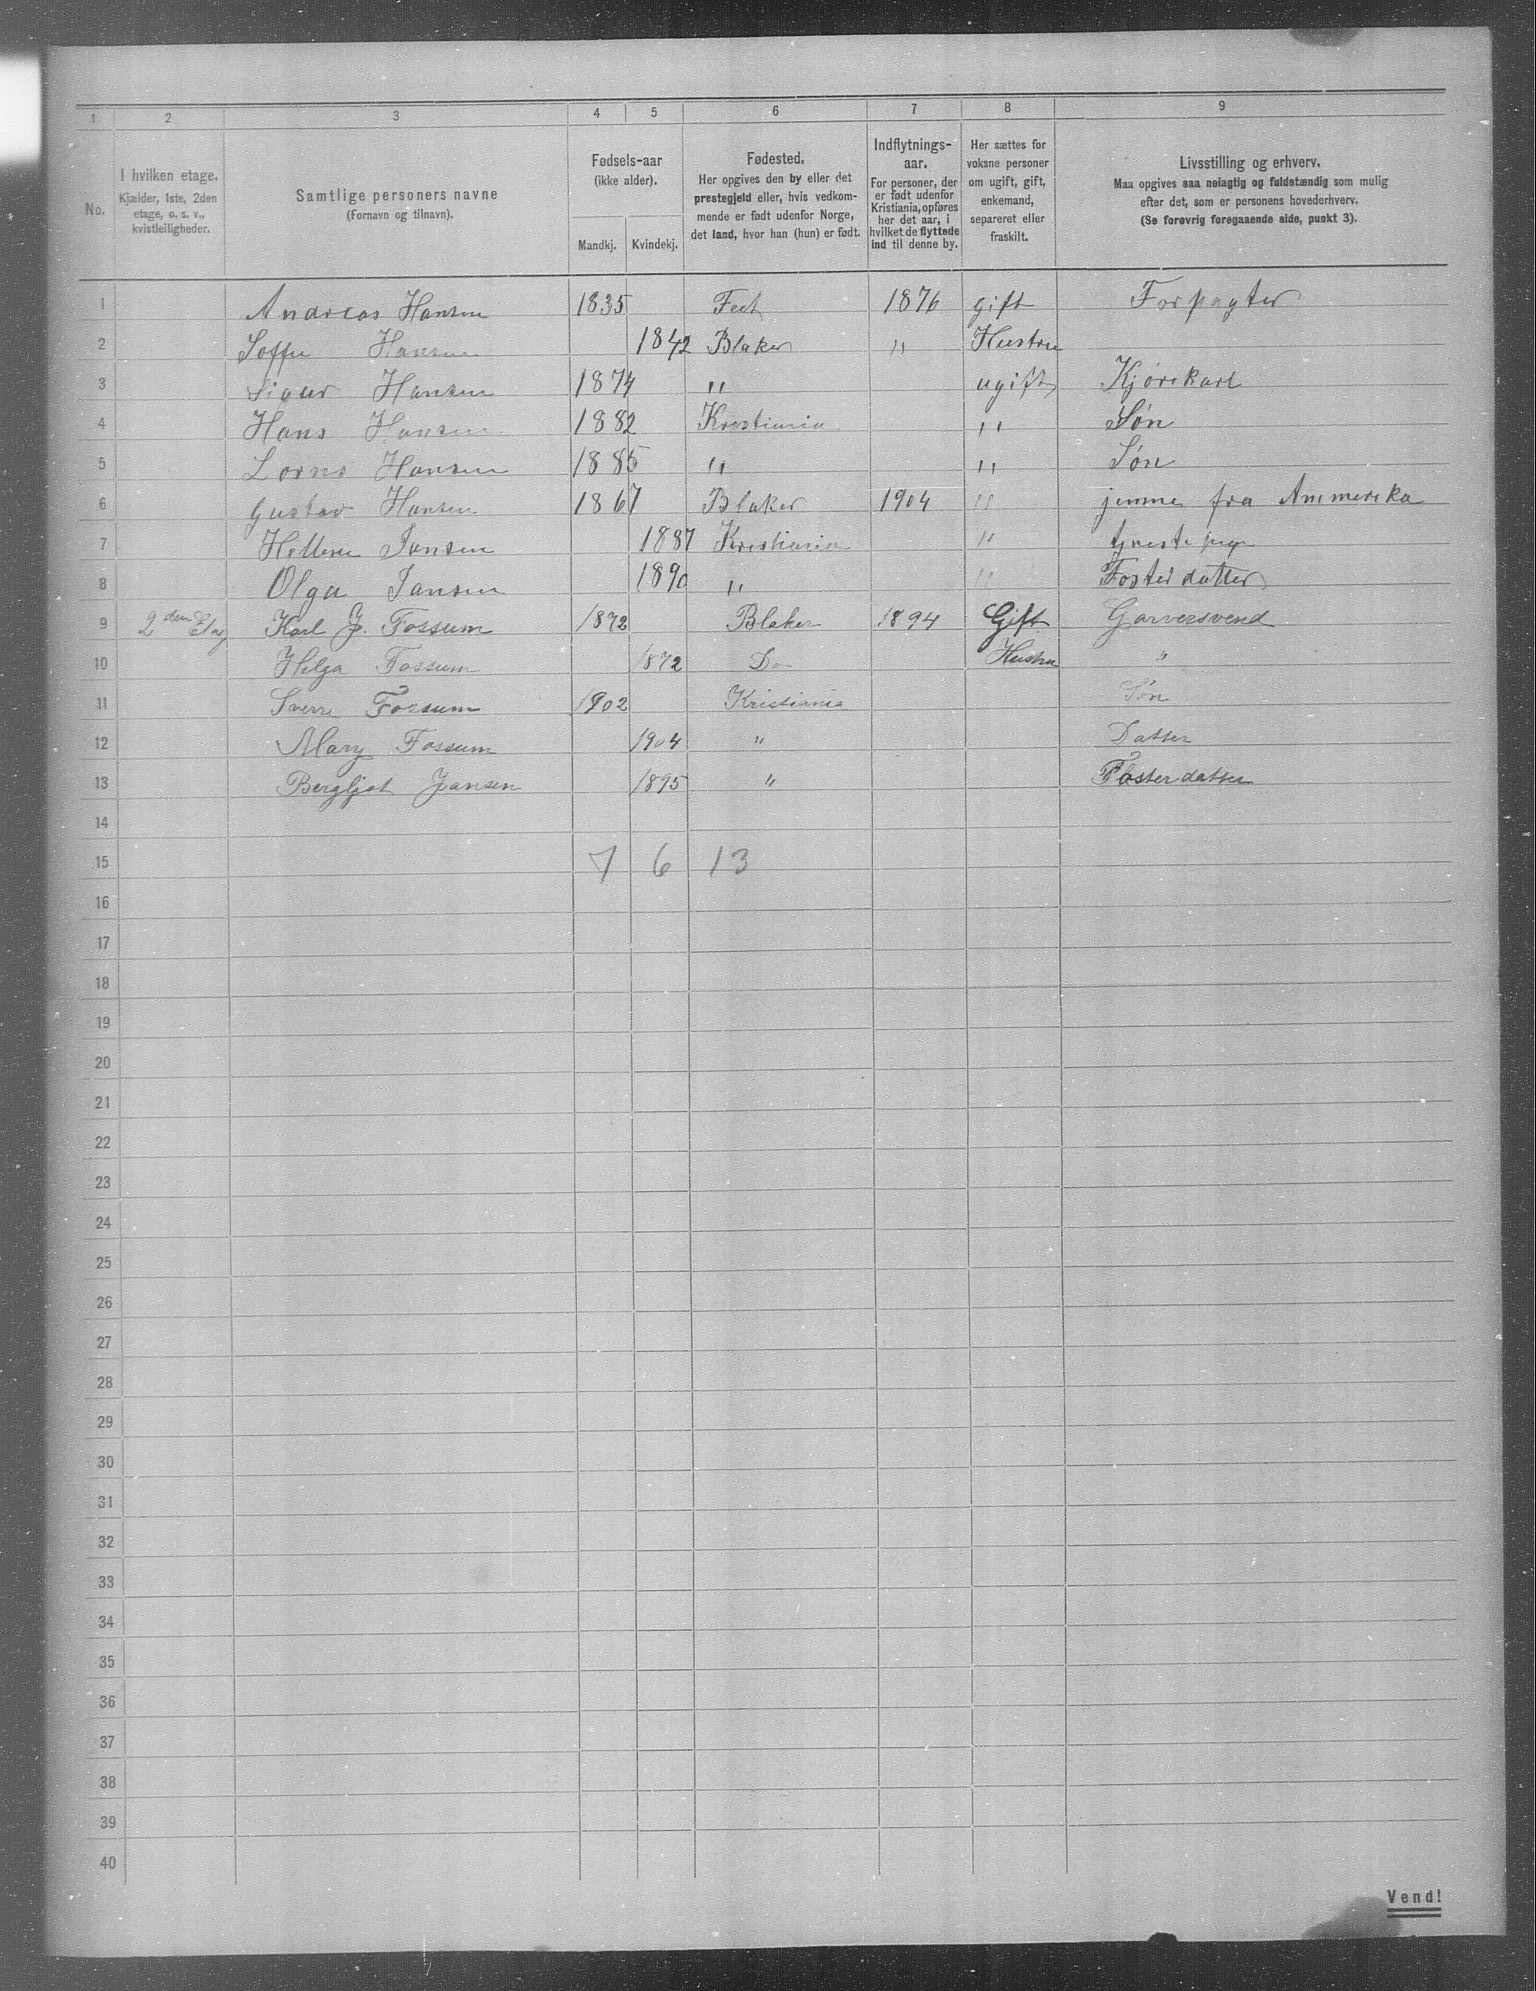 1 2 3 4 5 6 7 8 9
No. I hvilken etage. Kjælder, 1ste, 2den etage, o. s. v., kvistleiligheder. Samtlige personers navne (Fornavn og tilnavn). Fødsels-aar (ikke alder). Mandkj. Kvindekj. Fødested. Her opgives den by eller det prestegjeld eller, hvis vedkommende er født udenfor Norge, det land, hvor han (hun) er født. Indflytnings-aar. For personer, der er født udenfor Kristiania, opføres her det aar, i hvilket de flyttede ind til denne by. Her sættes for voksne personer om ugift, gift, enkemand, separeret eller fraskilt. Livsstilling og erhverv. Maa opgives saa nøiagtig og fuldstændig som mulig efter det, som er personens hovederhverv. (Se forøvrig foregaaende side, punkt 3).
1 Andreas Hansen 1835 Feet 1876 gift Forpagter
2 Soffie Hansen 1842 Blaker " Hustru
3 Sigur Hansen 1874 " ugift Kjørekarl
4 Hans Hansen 1882 Krestiania " Søn
5 Lorns Hansen 1885 " " Søn
6 Gustav Hansen 1867 Blaker 1904 " jemme fra Ammerika
7 Hellene Jansen 1887 Kristiania "
8 Olga Jansen 1890 " " Fosterdatter
9 2den Etag Karl J. Fossum 1872 Blaker 1894 Gift Garversvend
10 Helga Fossum 1872 Do Hustru "
11 Sverre Fossum 1902 Kristiania Søn
12 Mary Fossum 1904 " Datter
13 Bergljot Jansen 1895 " Fosterdatter
14
15 7 6 13
16
17
18
19
20
21
22
23
24
25
26
27
28
29
30
31
32
33
34
35
36
37
38
39
40
Vend!